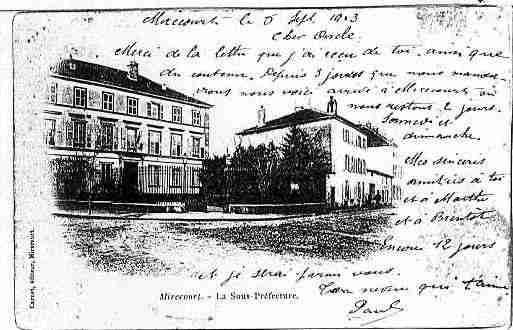 Mirecourt le 5 Sept 1903
Cher Oncle
Merci de la lettre que j'ai reçu de toi ainsi que
du contenu. Depuis 3 jours que nous manœu-
vrons nous voici arrivé à Mirecourt où
nous restons 2 jours.
Samedi et
dimanche.
Mes sincères
amitiés à toi
et à Marthe
et à
Encore 12 jours
et je serai parmi vous.
Ton neveu qui t'aime
Paul
Mirecourt. - La Sous-Préfecture.
éditeur, Mirecourt.